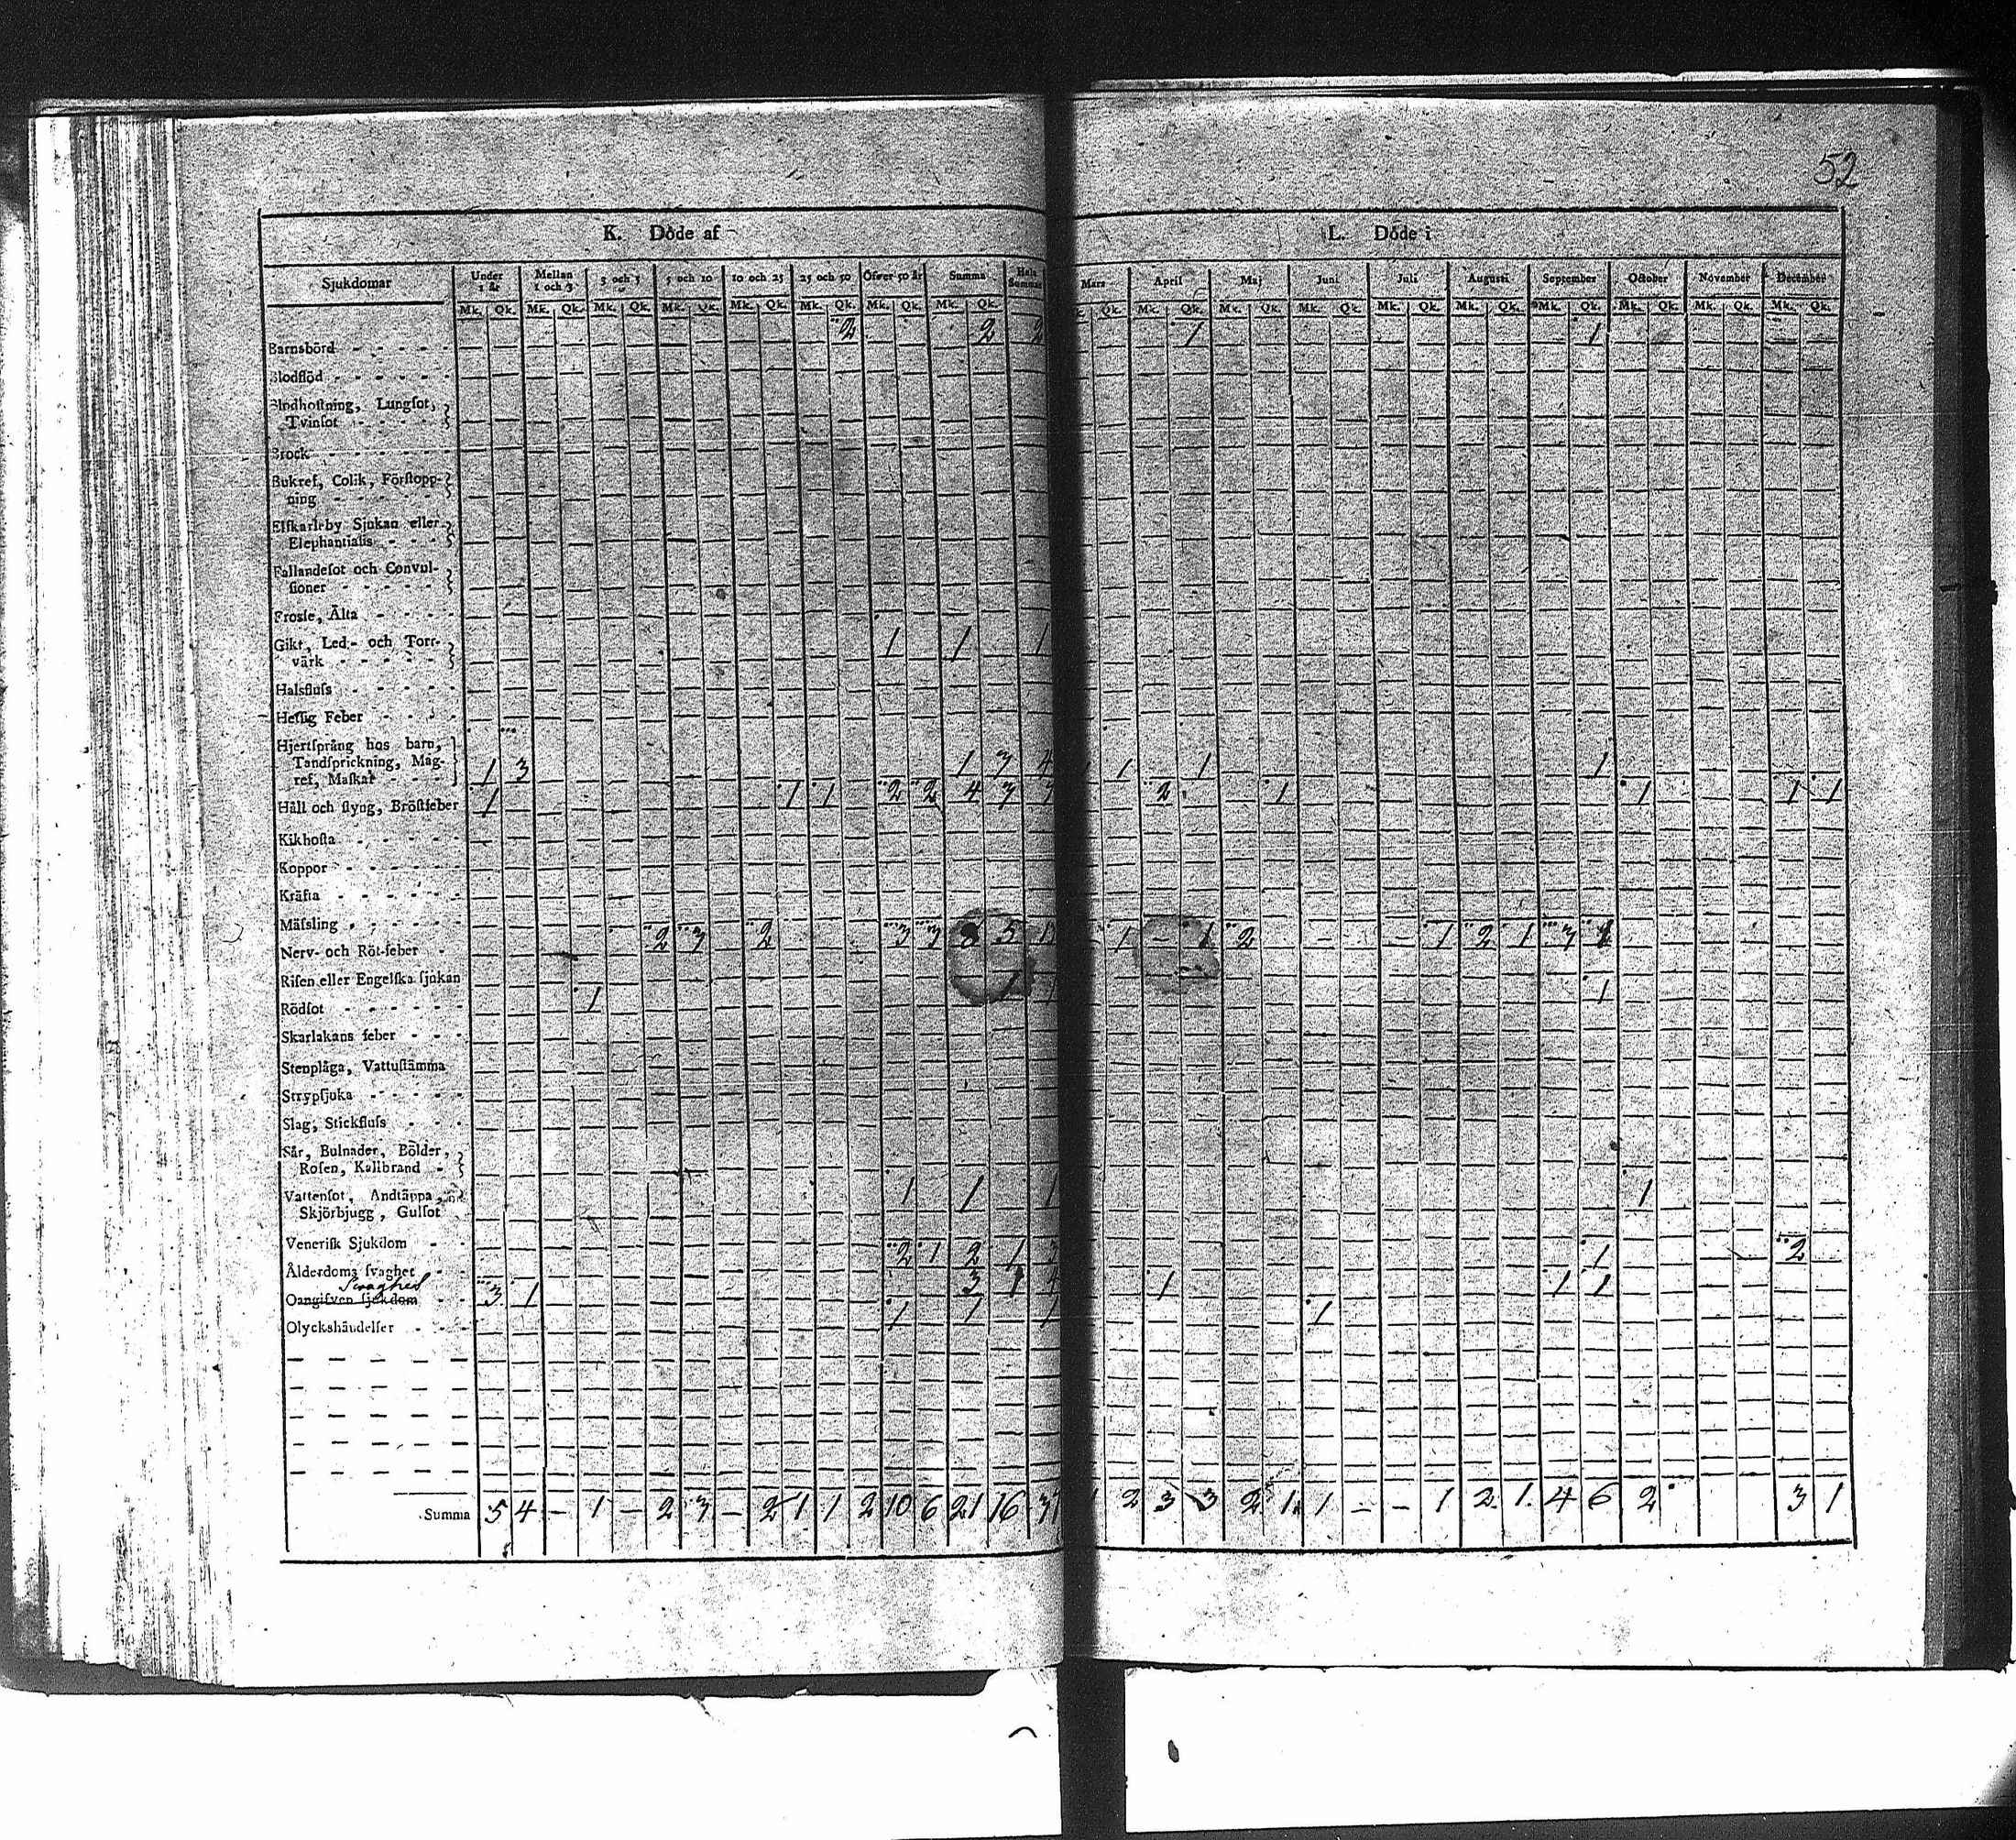 52
K. Döde af
L. Döde i
Sjukdomar Under 1 år Mellan 1 och 3 3 och 5 5 och 10 10 och 25 25 och 50 Öfwer 50 år Summa Hela Summan Mars April Maj Juni Juli Augusti September October November December
Mk. Qk. Mk. Qk. Mk. Qk. Mk. Qk. Mk. Qk. Mk. Qk. Mk. Qk. Mk. Qk. Qk. Mk. Qk. Mk. Qk. Mk. Qk. Mk. Qk. Mk. Qk. Mk. Qk. Mk. Qk. Mk. Qk. Mk. Qk.
Barnsbörd 2 2 2 1 1
Blodflöd
Blodhoſtning, Lungſot,
Tvinſot
Brock
Bukref, Colik, Förſtopp-
ning
Elſkarleby Sjukan eller
Elephantiaſis
Fallandeſot och Convul-
ſioner
Froſſe, Älta
Gikt, Led- och Torr-
värk 1 1 1
Halsfluſs
Hetſig Feber
Hjertſprång hos barn,
Tandſprickning, Mag-
ref, Maſkar 1 3 1 3 4 1 1 1
Håll och ſtyng, Bröſtfeber 1 1 1 2 2 4 3 7 2 1 1 1 1
Kikhoſta
Koppor
Kräfta
Mäſsling
Nerv- och Röt-feber 2 3 2 3 3 8 5 1 1 2 1 2 1 3 1
Riſen eller Engelſka ſjukan
Rödſot 1 1 1 1
Skarlakans feber
Stenplåga, Vattuſtämma
Strypſjuka
Slag, Stickfluſs
Sår, Bulnader, Bölder,
Roſen, Kallbrand
Vattenſot, Andtäppa,
Skjörbjugg, Gulſot 1 1 1 1
Veneriſk Sjukdom
Ålderdoms ſvaghet 2 1 2 1 3 1 2
Svaghed
Oangifven ſjukdom 3 1 3 1 4 1 1 1
Olyckshändelſer 1 1 1 1
Summa 5 4 – 1 – 2 3 – 2 1 1 2 10 6 21 16 37 1 2 3 3 2 1 1 – – 1 2 1 4 6 2 3 1